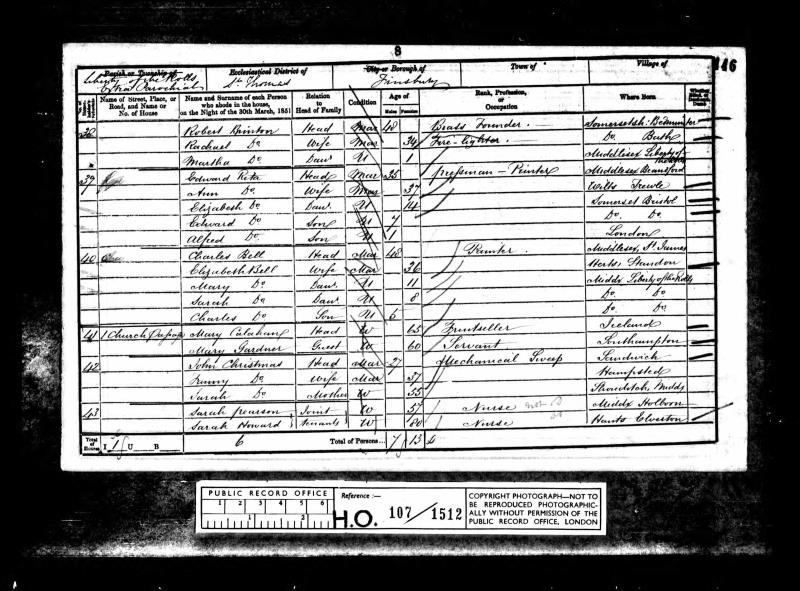 8
146
Parish or Township of Ecclesiastical District of City or Borough of Town of Village of
Liberty of the Rolls St Thomas Finsbury
Extra Parochial
Name of Street, Place, or Road, and Name or No. of House
Name and Surname of each Person who abode in the house, on the Night of the 30th March, 1851
Relation to Head of Family
Condition
Age of
Males Females
Rank, Profession, or Occupation
Where Born
38 Robert Brinton Head Mar 48 Brass Founder Somersetsh: Bedminster
Rachael Do Wife Mar 34 Fire-lighter Do Bath
Martha Do Daur U 1 Middlesex Liberty of
39 Edward Head Mar 35 pressman - Printer Middlesex
Ann Do Wife Mar 37 Wilts
Elizabeth Do Daur U 14 Somerset Bristol
Edward Do Son U 7 Do Do
Alfred Do Son U 1 London
40 Charles Bell Head Mar 48 Middlesex, St James
Elizabeth Bell Wife Mar 36 Herts, Standon
Mary Do Daur U 11 Middx Liberty of the Rolls
Sarah Do Daur U 8 Do Do
Charles Do Son U 6 Do Do
41 1 Church Passage Mary Calahan Head W 65 Fruitseller Ireland
Mary Gardner Guest W 60 Servant Southampton
42 John Christmas Head Mar 27 Mechanical Sweep
Do Wife Mar Hampsted
Sarah Do Mother W 55 Middx
43 Sarah Joint W 57 Nurse Middx Holborn
Sarah Howard tenants W Nurse Hants
Total of Houses I 1 U B 6 Total of Persons... 7 13
PUBLIC RECORD OFFICE
1 2 3 4 5 6
1 2
Reference :-
H.O. 107/1512
COPYRIGHT PHOTOGRAPH—NOT TO
BE REPRODUCED PHOTOGRAPHIC-
ALLY WITHOUT PERMISSION OF THE
PUBLIC RECORD OFFICE, LONDON